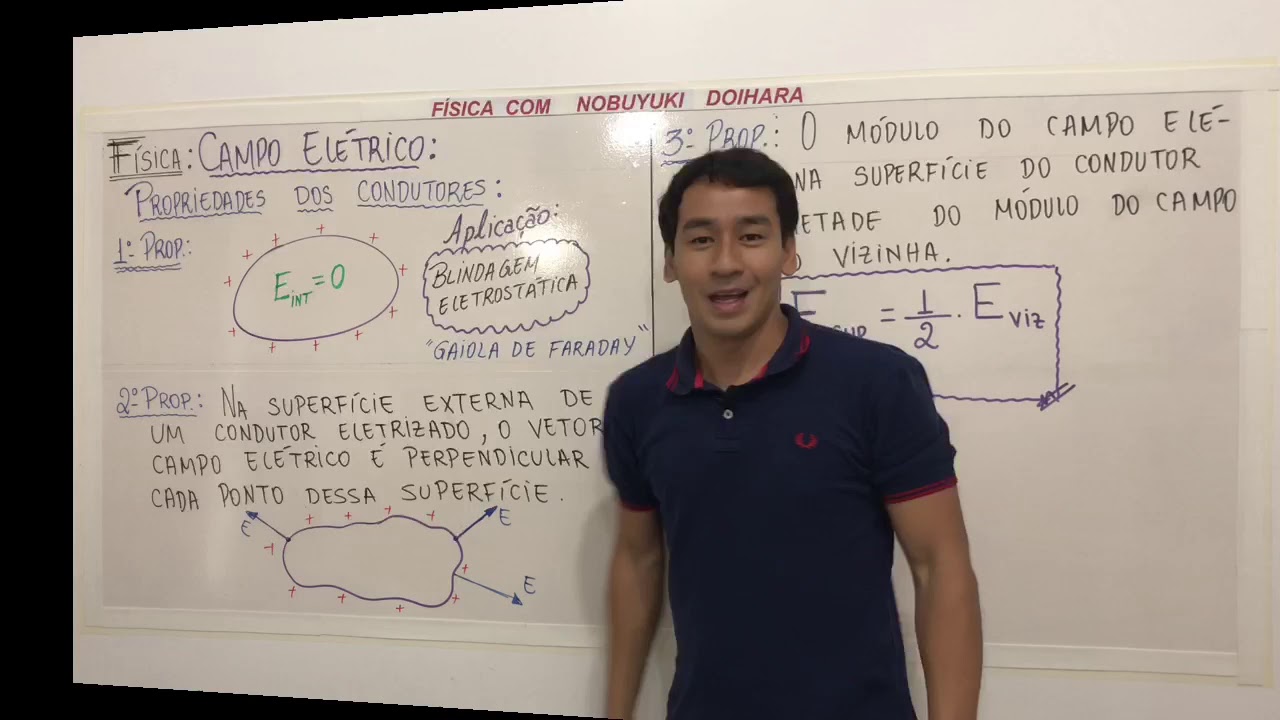 FÍSICA COM NOBUYUKI DOIHARA
FÍSICA: CAMPO ELÉTRICO:
PROPRIEDADES DOS CONDUTORES:
1ª PROP.:
E INT = 0
Aplicação:
BLINDAGEM
ELETROSTÁTICA
"GAIOLA DE FARADAY"
2ª PROP.: NA SUPERFÍCIE EXTERNA DE
UM CONDUTOR ELETRIZADO, O VETOR
CAMPO ELÉTRICO É PERPENDICULAR
CADA PONTO DESSA SUPERFÍCIE.
E
E
E
3ª PROP.: O MÓDULO DO CAMPO ELÉ-
NA SUPERFÍCIE DO CONDUTOR
DO MÓDULO DO CAMPO
VIZINHA.
E = 1/2 . E VIZ